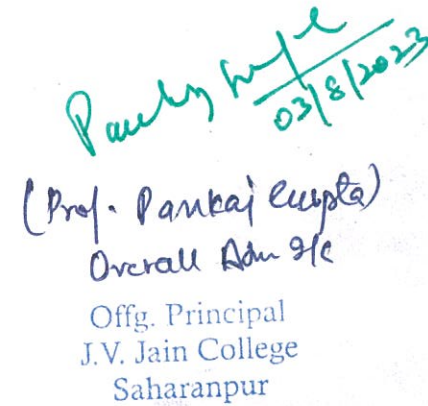 Pankaj Gupta
03/8/2023
(Prof. Pankaj Gupta)
Overall Adm I/c
Offg. Principal
J.V. Jain College
Saharanpur